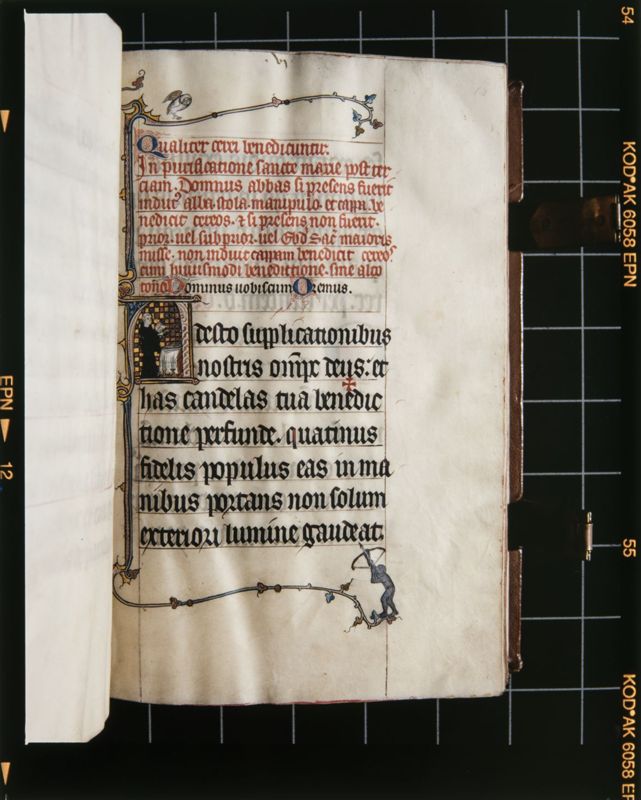 Qualiter cerei benedicuntur.
In purificatione sancte marie post ter
ciam. Domnus abbas si presens fuerit
induit² alba stola. manipulo. et cappa. be
nedicit cereos. ⁊ si presens non fuerit.
prior. uel subprior. uel Ebd Sac̄ maioris
misse. non induit cappam benedicit cereo⁹
cum huiusmodi benedictione. sine alto
Dominus uobiscum Oremus.
Adesto supplicationibus
nostris om̄pc deus: et
has candelas tua benedic
tione perfunde. quatinus
fidelis populus eas in ma
nibus portans non solum
exteriori lumine gaudeat.
54
KOD•AK 6058 EPN
55
KOD•AK 6058 EP
EPN
12